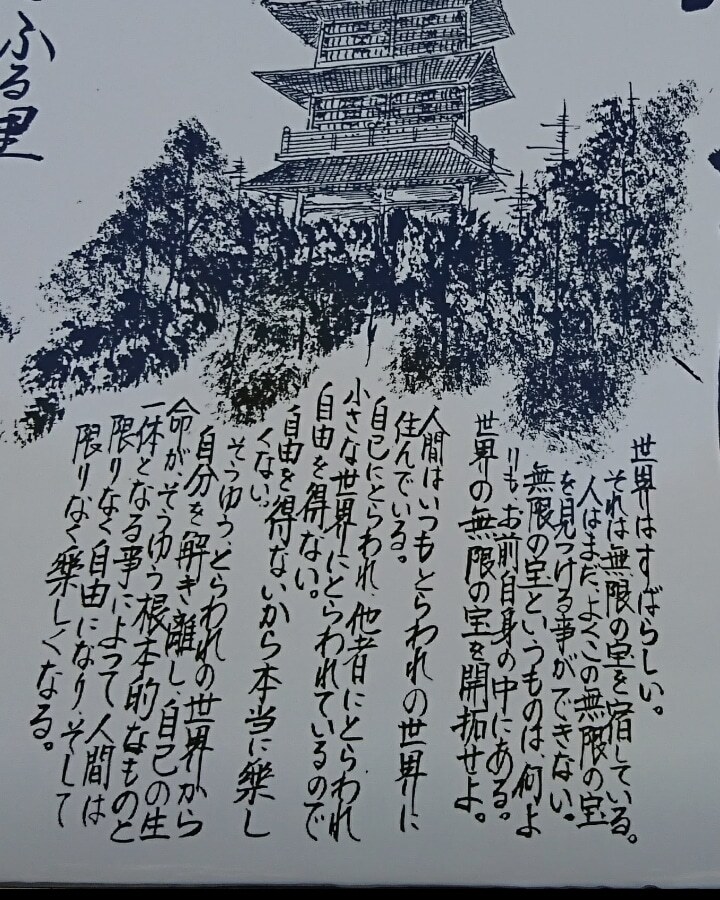 世界はすばらしい。
それは無限の宝を宿している。
人はまだ、よくこの無限の宝
を見つける事ができない。
無限の宝というものは、何よ
りもお前自身の中にある。
世界の無限の宝を開拓せよ。
人間はいつもとらわれの世界に
住んでいる。
自己にとらわれ、他者にとらわれ
小さな世界にとらわれているので
自由を得ない。
自由を得ないから本当に楽し
くない。
そうゆうとらわれの世界から
自分を解き離し、自己の生
命がそうゆう根本的なものと
一体となる事によって人間は
限りなく自由になり、そして
限りなく楽しくなる。
ふる里